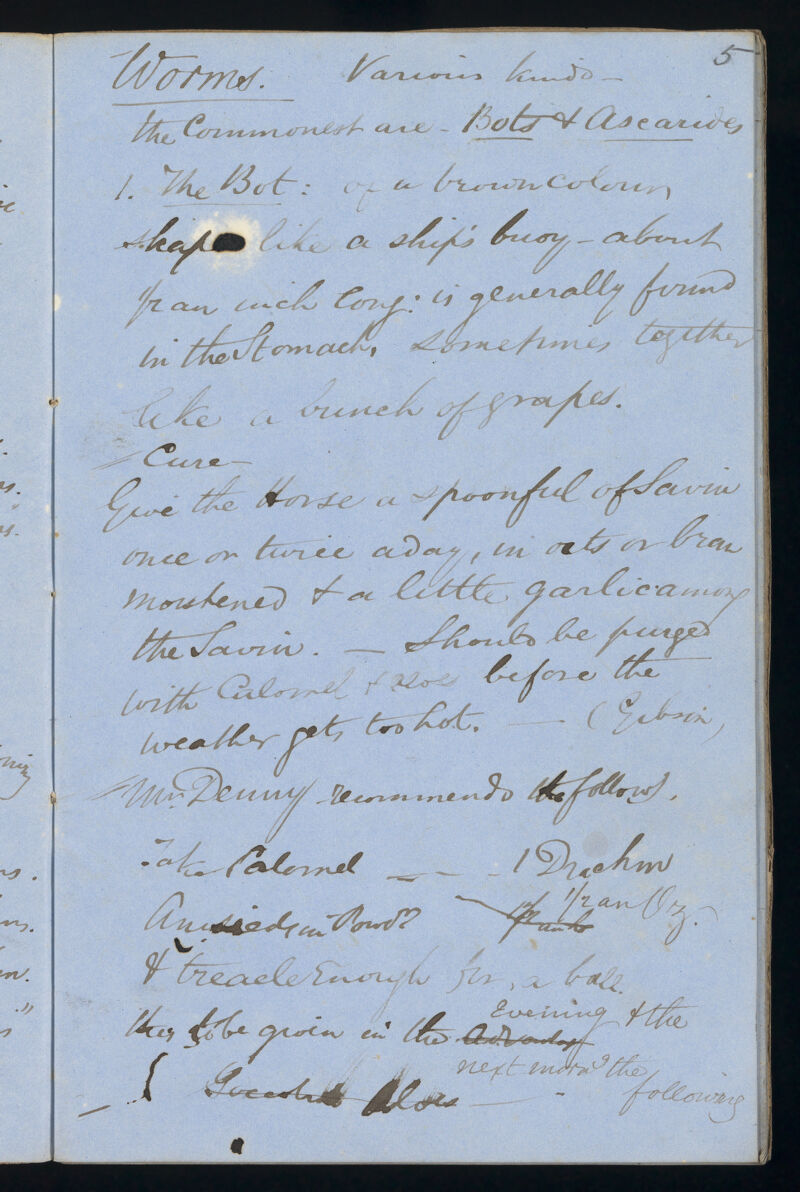 5
Worms. Various kinds –
the Commonest are – Bots & Ascarides
1. The Bot: of a brown colour,
shape like a ship's buoy – about
½ an inch long: is generally found
in the Stomach, sometimes together
like a bunch of grapes.
Cure –
Give the Horse a spoonful of Savin
once or twice a day, in oats or bran
moistened & a little garlic among
the Savin. – Should be purged
with Calomel & aloes before the
weather gets too hot. – (Gibson,
Mr. Denny recommends the follows.
Take Calomel – – – 1 Drachm
Aniseeds in Powdr ½ an Oz.
& treacle Enough for a ball
this to be given in the Evening & the
next morng the
following
{ Aloes